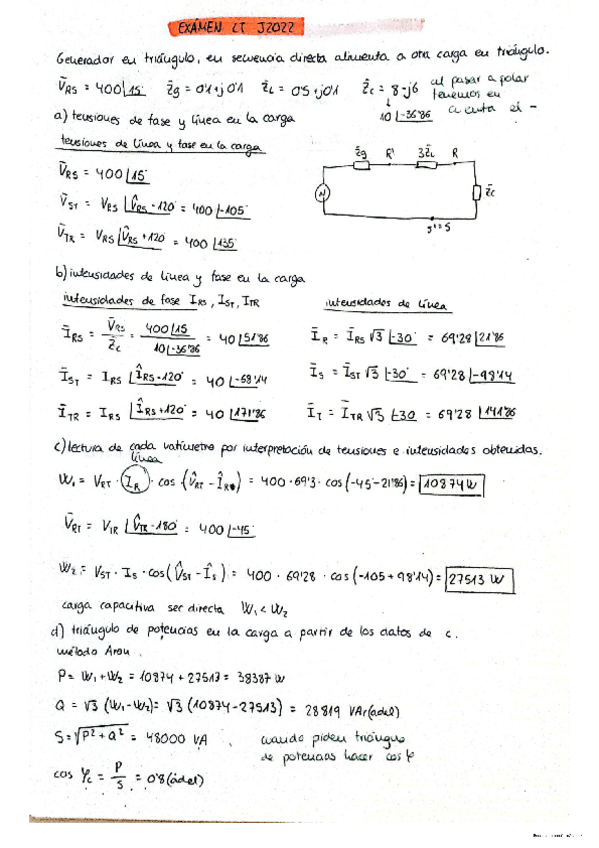 EXÁMEN CT J2022
Generador en triángulo, en secuencia directa alimenta a otra carga en triángulo.
V̄RS = 400|15° z̄g = 0'1+j0'1 z̄L = 0'5+j0'1 z̄c = 8-j6 al pasar a polar
↓ tenemos en
10|-36'86 cuenta el -
a) tensiones de fase y línea en la carga
tensiones de línea y fase en la carga
V̄RS = 400|15°
V̄ST = VRS|V̂RS-120° = 400|-105°
V̄TR = VRS|V̂RS+120° = 400|135°
z̄g R' 3z̄L R
N z̄c
S''=S
b) intensidades de línea y fase en la carga
intensidades de fase IRS, IST, ITR
intensidades de línea
ĪRS = V̄RS / z̄c = 400|15 / 10|-36'86 = 40|51'86
ĪR = ĪRS √3 |-30° = 69'28|21'86
ĪST = IRS|ÎRS-120° = 40|-68'14
ĪS = ĪST √3 |-30° = 69'28|-98'14
ĪTR = IRS|ÎRS+120° = 40|171'86
ĪT = ĪTR √3 |-30 = 69'28|141'86
c) lectura de cada vatímetro por interpretación de tensiones e intensidades obtenidas.
línea
W1 = VRT · IR · cos (V̂RT - ÎR) = 400·69'3·cos(-45-21'86) = 10874W
V̄RT = VTR|V̂TR-180° = 400|-45°
W2 = VST · IS · cos(V̂ST - ÎS) = 400·69'28·cos(-105+98'14) = 27513 W
carga capacitiva ser directa W1 < W2
d) triángulo de potencias en la carga a partir de los datos de c.
método Aron.
P = W1+W2 = 10874+27513 = 38387 W
Q = √3 (W1-W2) = √3 (10874-27513) = 28819 VAr(adel)
S = √P²+Q² = 48000 VA. cuando piden triángulo
de potencias hacer cos φ
cos φc = P / S = 0'8 (adel)